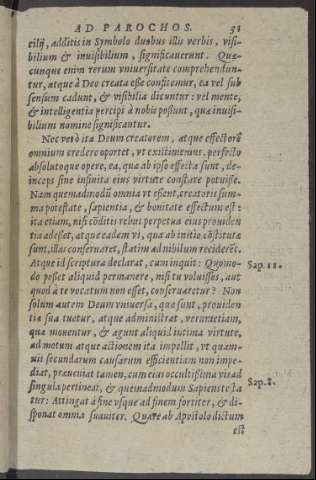 AD PAROCHOS. 31
cilij, additis in Symbolo duobus illis verbis, visi-
bilium & inuisibilium, significauerunt. Quæ-
cunque enim rerum vniuersitate comprehendun-
tur, atque à Deo creata esse confitemur, ea vel sub
sensum cadunt, & visibilia dicuntur: vel mente,
& intelligentia percipi à nobis possunt, quæ inuisi-
bilium nomine significantur.
Nec verò ita Deum creatorem, atque effectorẽ
omnium credere oportet, vt existimemus, perfecto
absolutoque opere, ea, quæ ab ipso effecta sunt, de-
inceps sine infinita eius virtute constare potuisse.
Nam quemadmodũ omnia vt essent, creatoris sum-
ma potestate, sapientia, & bonitate effectum est:
ita etiam, nisi cõditis rebus perpetua eius prouiden
tia adesset, atque eadem vi, qua ab initio cõstitutæ
sunt, illas conseruaret, statim ad nihilum reciderẽt.
Atque id scriptura declarat, cum inquit: Quomo-
do posset aliquid permanere, nisi tu voluisses, aut
quod à te vocatum non esset, conseruaretur? Non
solum autem Deum vniuersa, quæ sunt, prouiden
tia sua tuetur, atque administrat, verumetiam,
quæ mouentur, & agunt aliquid intima virtute,
ad motum atque actionem ita impellit, vt quam-
uis secundarum causarum efficientiam non impe-
diat, præueniat tamen, cum eius occultissima vis ad
singula pertineat, & quemadmodum Sapiens testa
tur: Attingat à fine vsque ad finem fortiter, & di-
sponat omnia suauiter. Quare ab Apostolo dictum
est
Sap. 11.
Sap. 8.